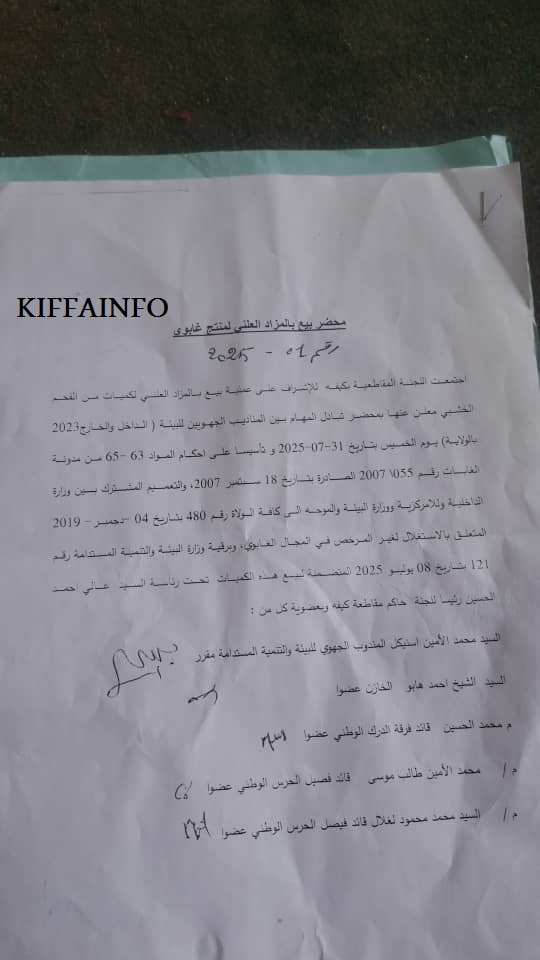 KIFFAINFO
محضر بيع بالمزاد العلني لمنتج غابوي
رقم 01 - 2025
اجتمعت اللجنة المقاطعية بكيفه للإشراف على عملية بيع بالمزاد العلني لكميات من الفحم
الخشبي معلن عنها بمحضر تبادل المهام بين المناديب الجهويين للبيئة ( الداخل والخارج2023
بالولاية) يوم الخميس بتاريخ 31-07-2025 و تأسيسا على احكام المواد 63 -65 من مدونة
الغابات رقم 055\ 2007 الصادرة بتاريخ 18 سبتمبر 2007، والتعميم المشترك بين وزارة
الداخلية وللامركزية ووزارة البيئة والموجه الى كافة الولاة رقم 480 بتاريخ 04 -دجمبر - 2019
المتعلق بالاستغلال لغير المرخص في المجال الغابوي، وبرقية وزارة البيئة والتنمية المستدامة رقم
121 بتاريخ 08 يوليو 2025 المتضمنة لبيع هذه الكميات تحت رئاسة السيد عالي احمد
الحسين رئيسا للجنة حاكم مقاطعة كيفه وبعضوية كل من :
السيد محمد الأمين اسنيكل المندوب الجهوي للبيئة والتنمية المستدامة مقرر
السيد الشيخ احمد هابو الخازن عضوا
م محمد الحسين قائد فرقة الدرك الوطني عضوا
م / محمد الأمين طالب موسى قائد فصيل الحرس الوطني عضوا
م / السيد محمد محمود لغلال قائد فيصل الحرس الوطني عضوا